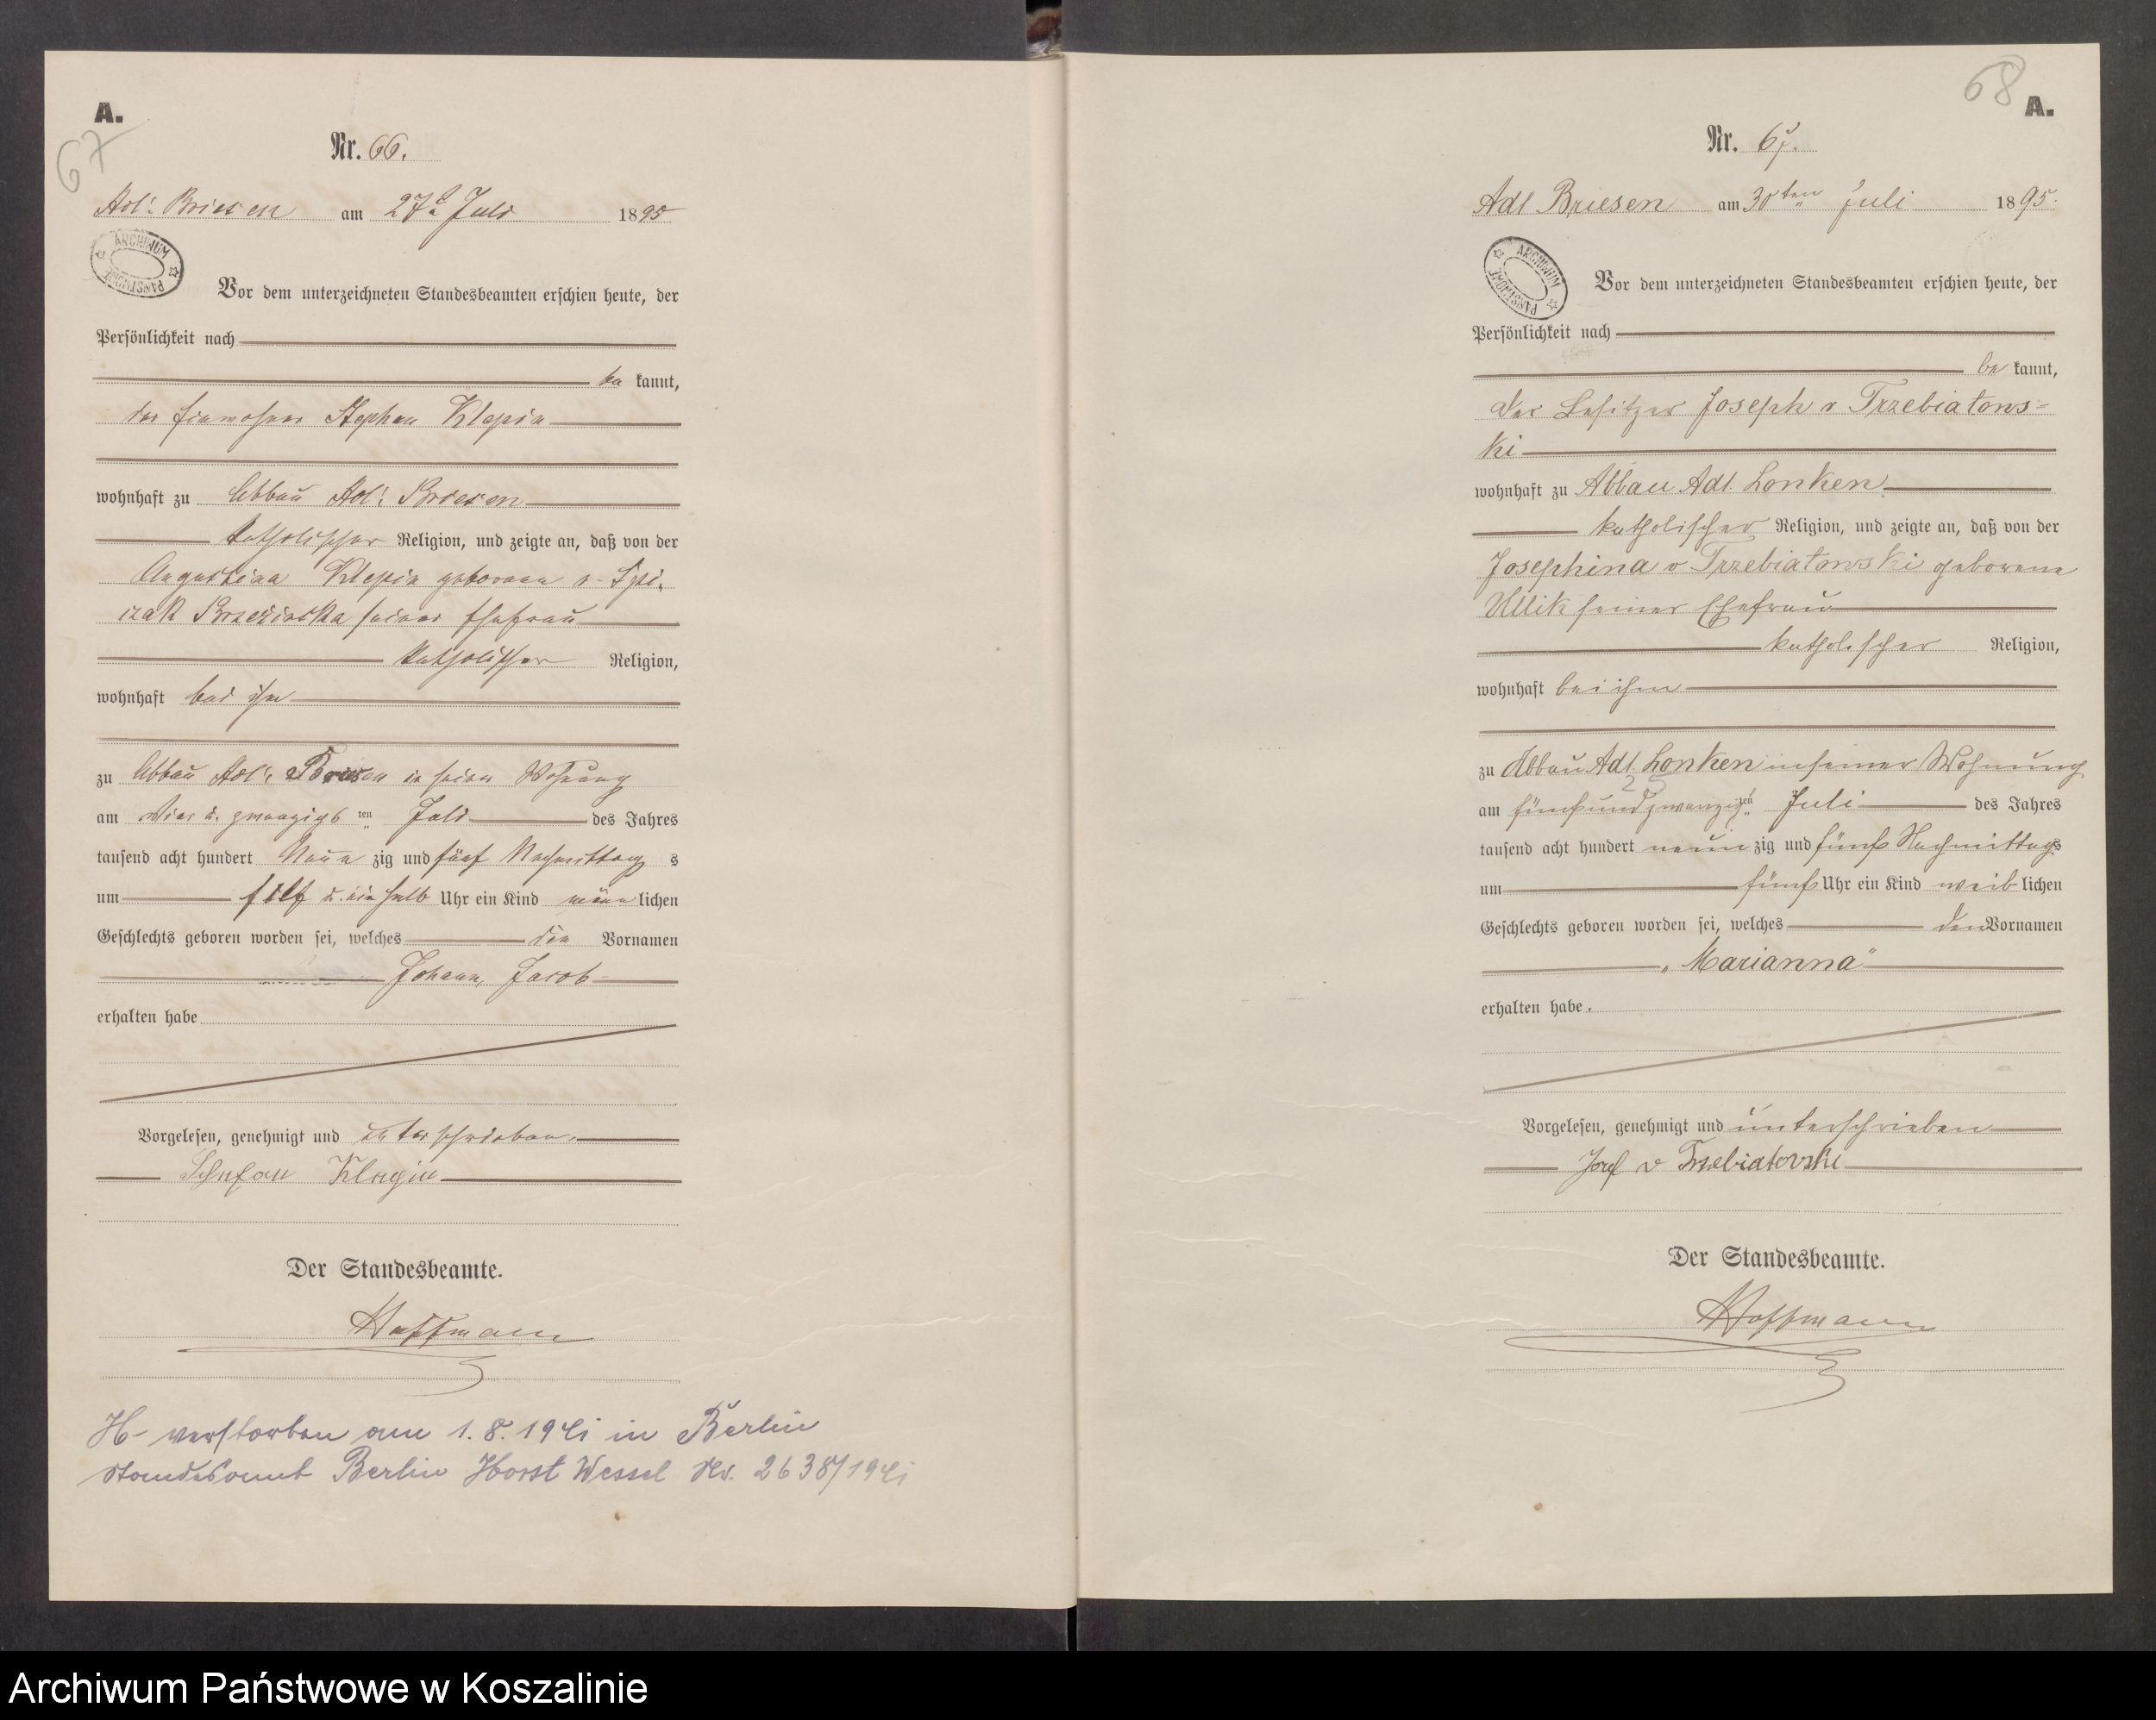 A.
67
Nr. 66.
Adl. Briesen am 27ten Juli 1895
ARCHIWUM
PAŃSTWOWE
Vor dem unterzeichneten Standesbeamten erschien heute, der
Persönlichkeit nach
be kannt,
der Einwohner Stephan Klepin
wohnhaft zu Abbau Adl. Briesen
katholischer Religion, und zeigte an, daß von der
Augustina Klepin geborenen v.
Brzezinska seiner Ehefrau
katholischer Religion,
wohnhaft bei ihm
zu Abbau Adl. Briesen in seiner Wohnung
am vier u. zwanzigsten Juli des Jahres
tausend acht hundert Neun zig und fünf Nachmittag s
um elf u. ein halb Uhr ein Kind männ lichen
Geschlechts geboren worden sei, welches den Vornamen
Johann, Jacob
erhalten habe
Vorgelesen, genehmigt und unterschrieben.
Klepin
Der Standesbeamte.
Hoffmann
H- verstorben am 1. 8. 1941 in Berlin
Standesamt Berlin Horst Wessel Nr. 2638/1941
68
A.
Nr. 67.
Adl Briesen am 30ten Juli 1895.
ARCHIWUM
PAŃSTWOWE
Vor dem unterzeichneten Standesbeamten erschien heute, der
Persönlichkeit nach
be kannt,
der Besitzer Joseph v Trzebiatows=
ki
wohnhaft zu Abbau Adl. Lonken
katholischer Religion, und zeigte an, daß von der
Josephina v Trzebiatowski geborene
Ullik seiner Ehefrau
katholischer Religion,
wohnhaft bei ihm
zu Abbau Adl. Lonken in seiner Wohnung
25
am fünfundzwanzigten Juli des Jahres
tausend acht hundert neun zig und fünf Nachmittags
um fünf Uhr ein Kind weib lichen
Geschlechts geboren worden sei, welches den Vornamen
„Marianna“
erhalten habe.
Vorgelesen, genehmigt und unterschrieben
Josef v Trzebiatowski
Der Standesbeamte.
Hoffmann
Archiwum Państwowe w Koszalinie